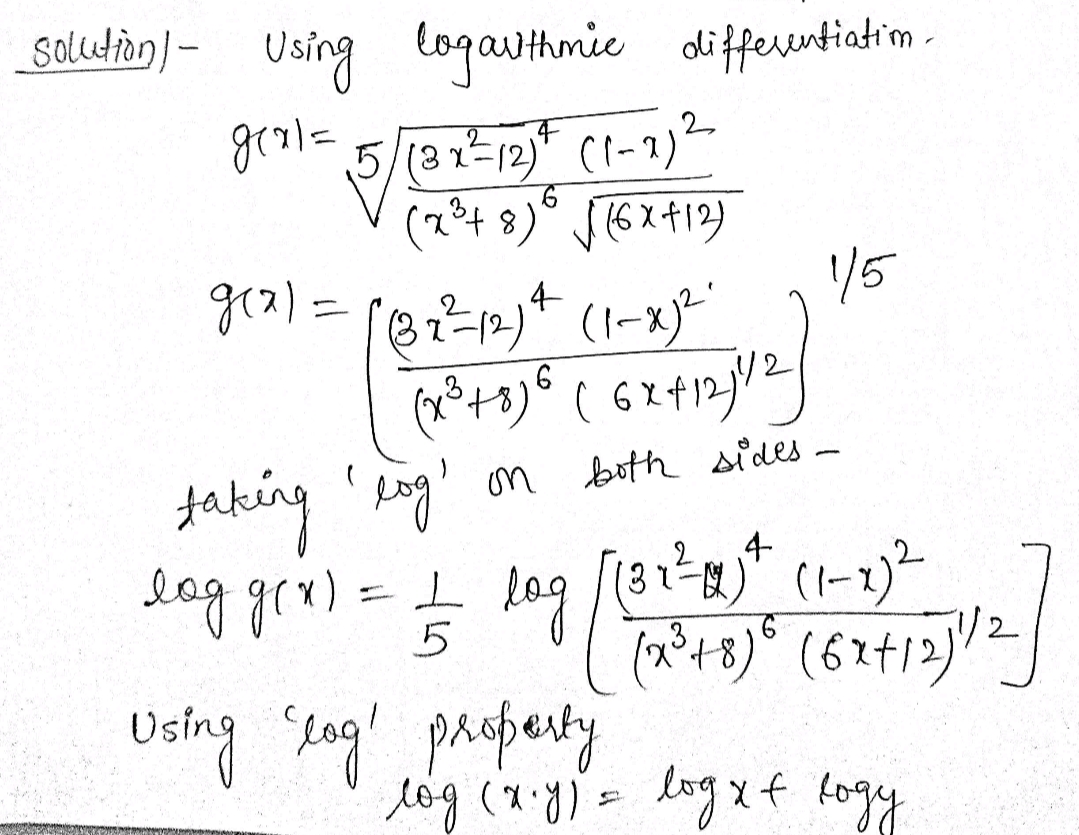 solution)- Using logarithmic differentiation-
g(x)= ⁵√((3x²-12)⁴ (1-x)² / (x³+8)⁶ √(6x+12))
g(x) = [(3x²-12)⁴ (1-x)² / (x³+8)⁶ (6x+12)^1/2]^1/5
taking 'log' on both sides -
log g(x) = 1/5 log [(3x²-12)⁴ (1-x)² / (x³+8)⁶ (6x+12)^1/2]
Using 'log' property
log (x·y) = log x + logy